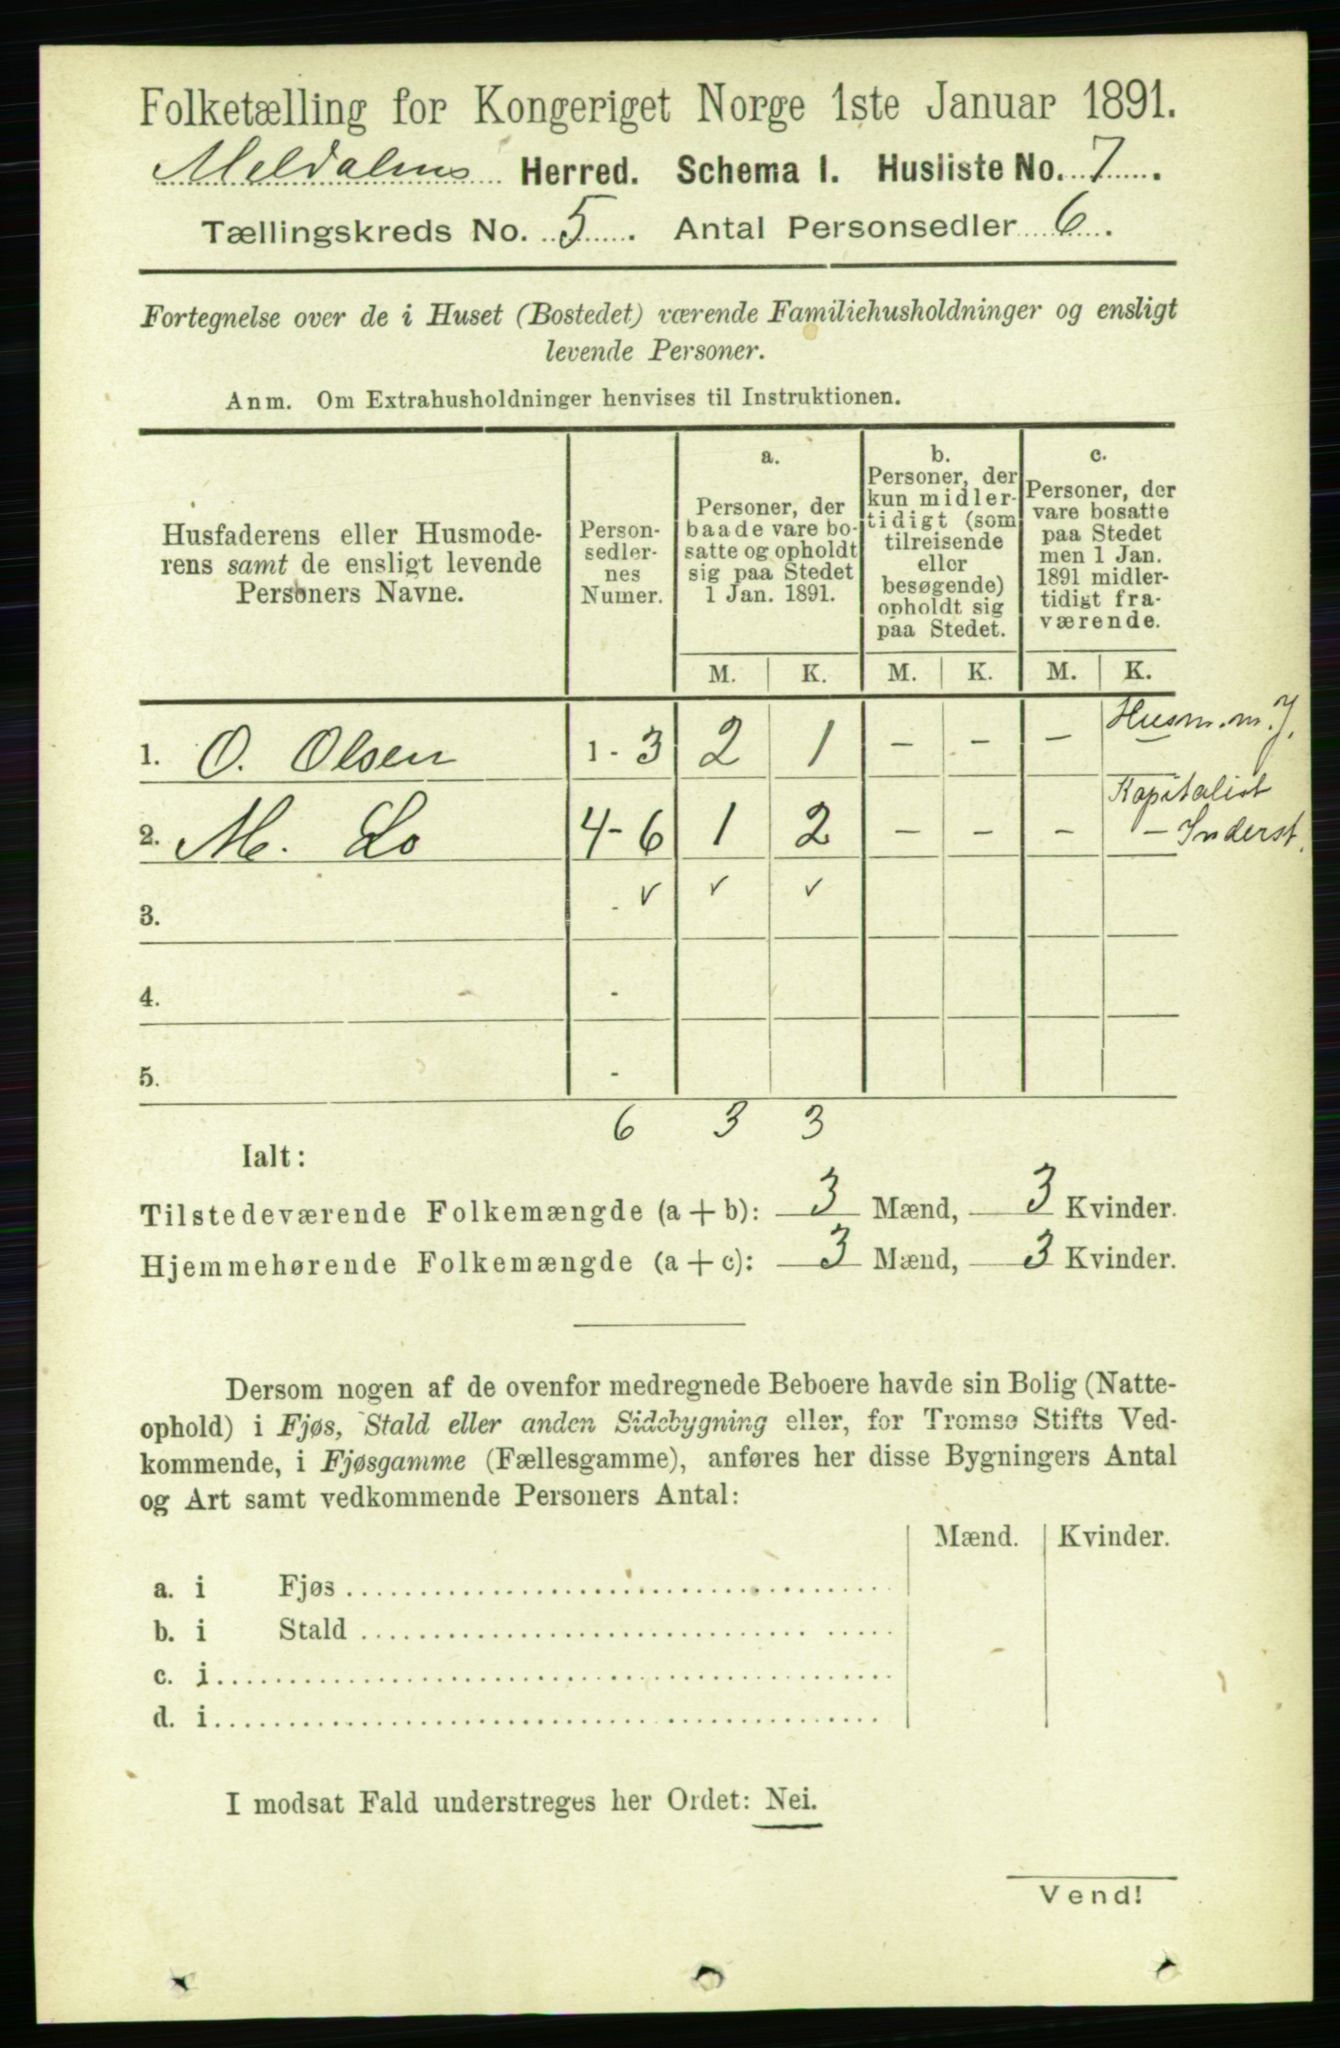 Folketælling for Kongeriget Norge 1ste Januar 1891.
Meldalens Herred. Schema 1. Husliste No. 7.
Tællingskreds No. 5. Antal Personsedler 6.
Fortegnelse over de i Huset (Bostedet) værende Familiehusholdninger og ensligt
levende Personer.
Anm. Om Extrahusholdninger henvises til Instruktionen.
Husfaderens eller Husmode-
rens samt de ensligt levende
Personers Navne.
Person-
sedler-
nes
Numer.
a.
Personer, der
baade vare bo-
satte og opholdt
sig paa Stedet
1 Jan. 1891.
b.
Personer, der
kun midler-
tidigt (som
tilreisende
eller
besøgende)
opholdt sig
paa Stedet.
c.
Personer, der
vare bosatte
paa Stedet
men 1 Jan.
1891 midler-
tidigt fra-
værende.
M. K. M. K. M. K.
1. O. Olsen 1-3 2 1 - - - Husm. m. J.
2. M. Lo 4-6 1 2 - - - Kapitalist
- Inderst.
3. ✓ ✓ ✓
4. -
5. -
6 3 3
Ialt:
Tilstedeværende Folkemængde (a + b): 3 Mænd, 3 Kvinder.
Hjemmehørende Folkemængde (a + c): 3 Mænd, 3 Kvinder.
Dersom nogen af de ovenfor medregnede Beboere havde sin Bolig (Natte-
ophold) i Fjøs, Stald eller anden Sidebygning eller, for Tromsø Stifts Ved-
kommende, i Fjøsgamme (Fællesgamme), anføres her disse Bygningers Antal
og Art samt vedkommende Personers Antal:
Mænd. Kvinder.
a. i Fjøs
b. i Stald
c. i
d. i
I modsat Fald understreges her Ordet: Nei.
Vend!